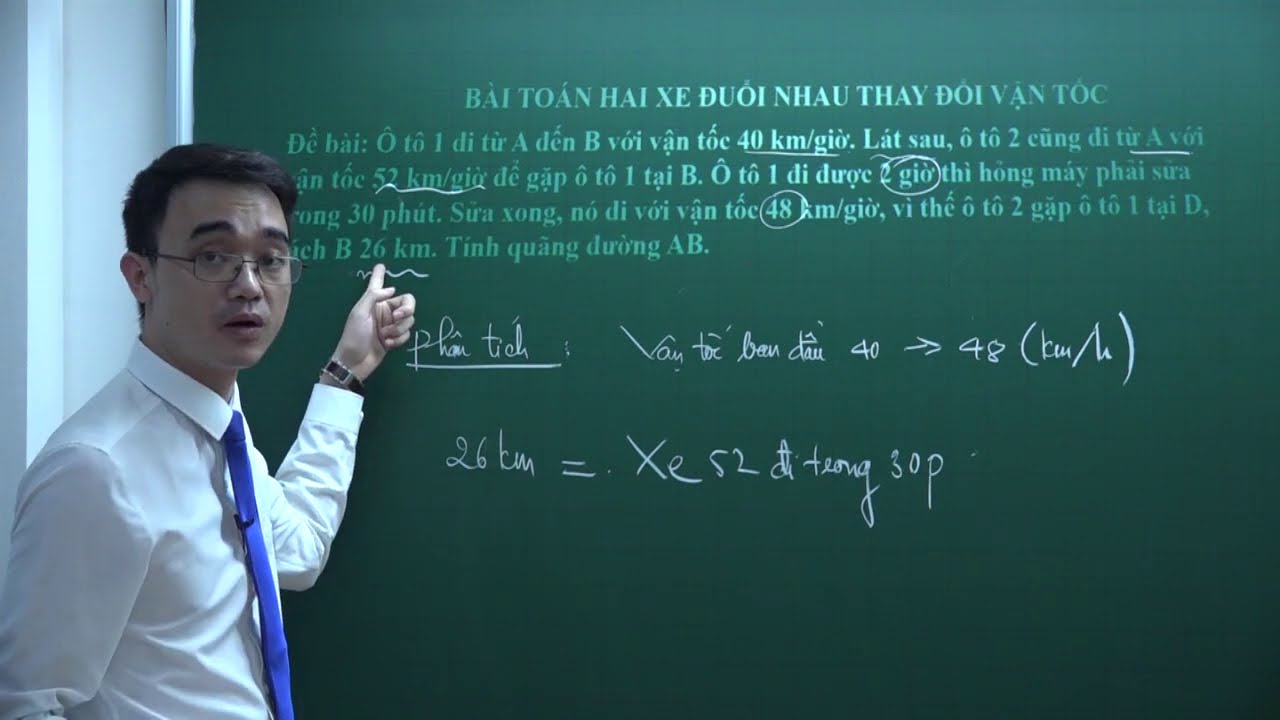 BÀI TOÁN HAI XE ĐUỔI NHAU THAY ĐỔI VẬN TỐC
Đề bài: Ô tô 1 đi từ A đến B với vận tốc 40 km/giờ. Lát sau, ô tô 2 cũng đi từ A với
ận tốc 52 km/giờ để gặp ô tô 1 tại B. Ô tô 1 đi được 2 giờ thì hỏng máy phải sửa
rong 30 phút. Sửa xong, nó đi với vận tốc 48 km/giờ, vì thế ô tô 2 gặp ô tô 1 tại D,
ách B 26 km. Tính quãng đường AB.
phân tích : Vận tốc ban đầu 40 → 48 (km/h)
26 km = Xe 52 đi trong 30p